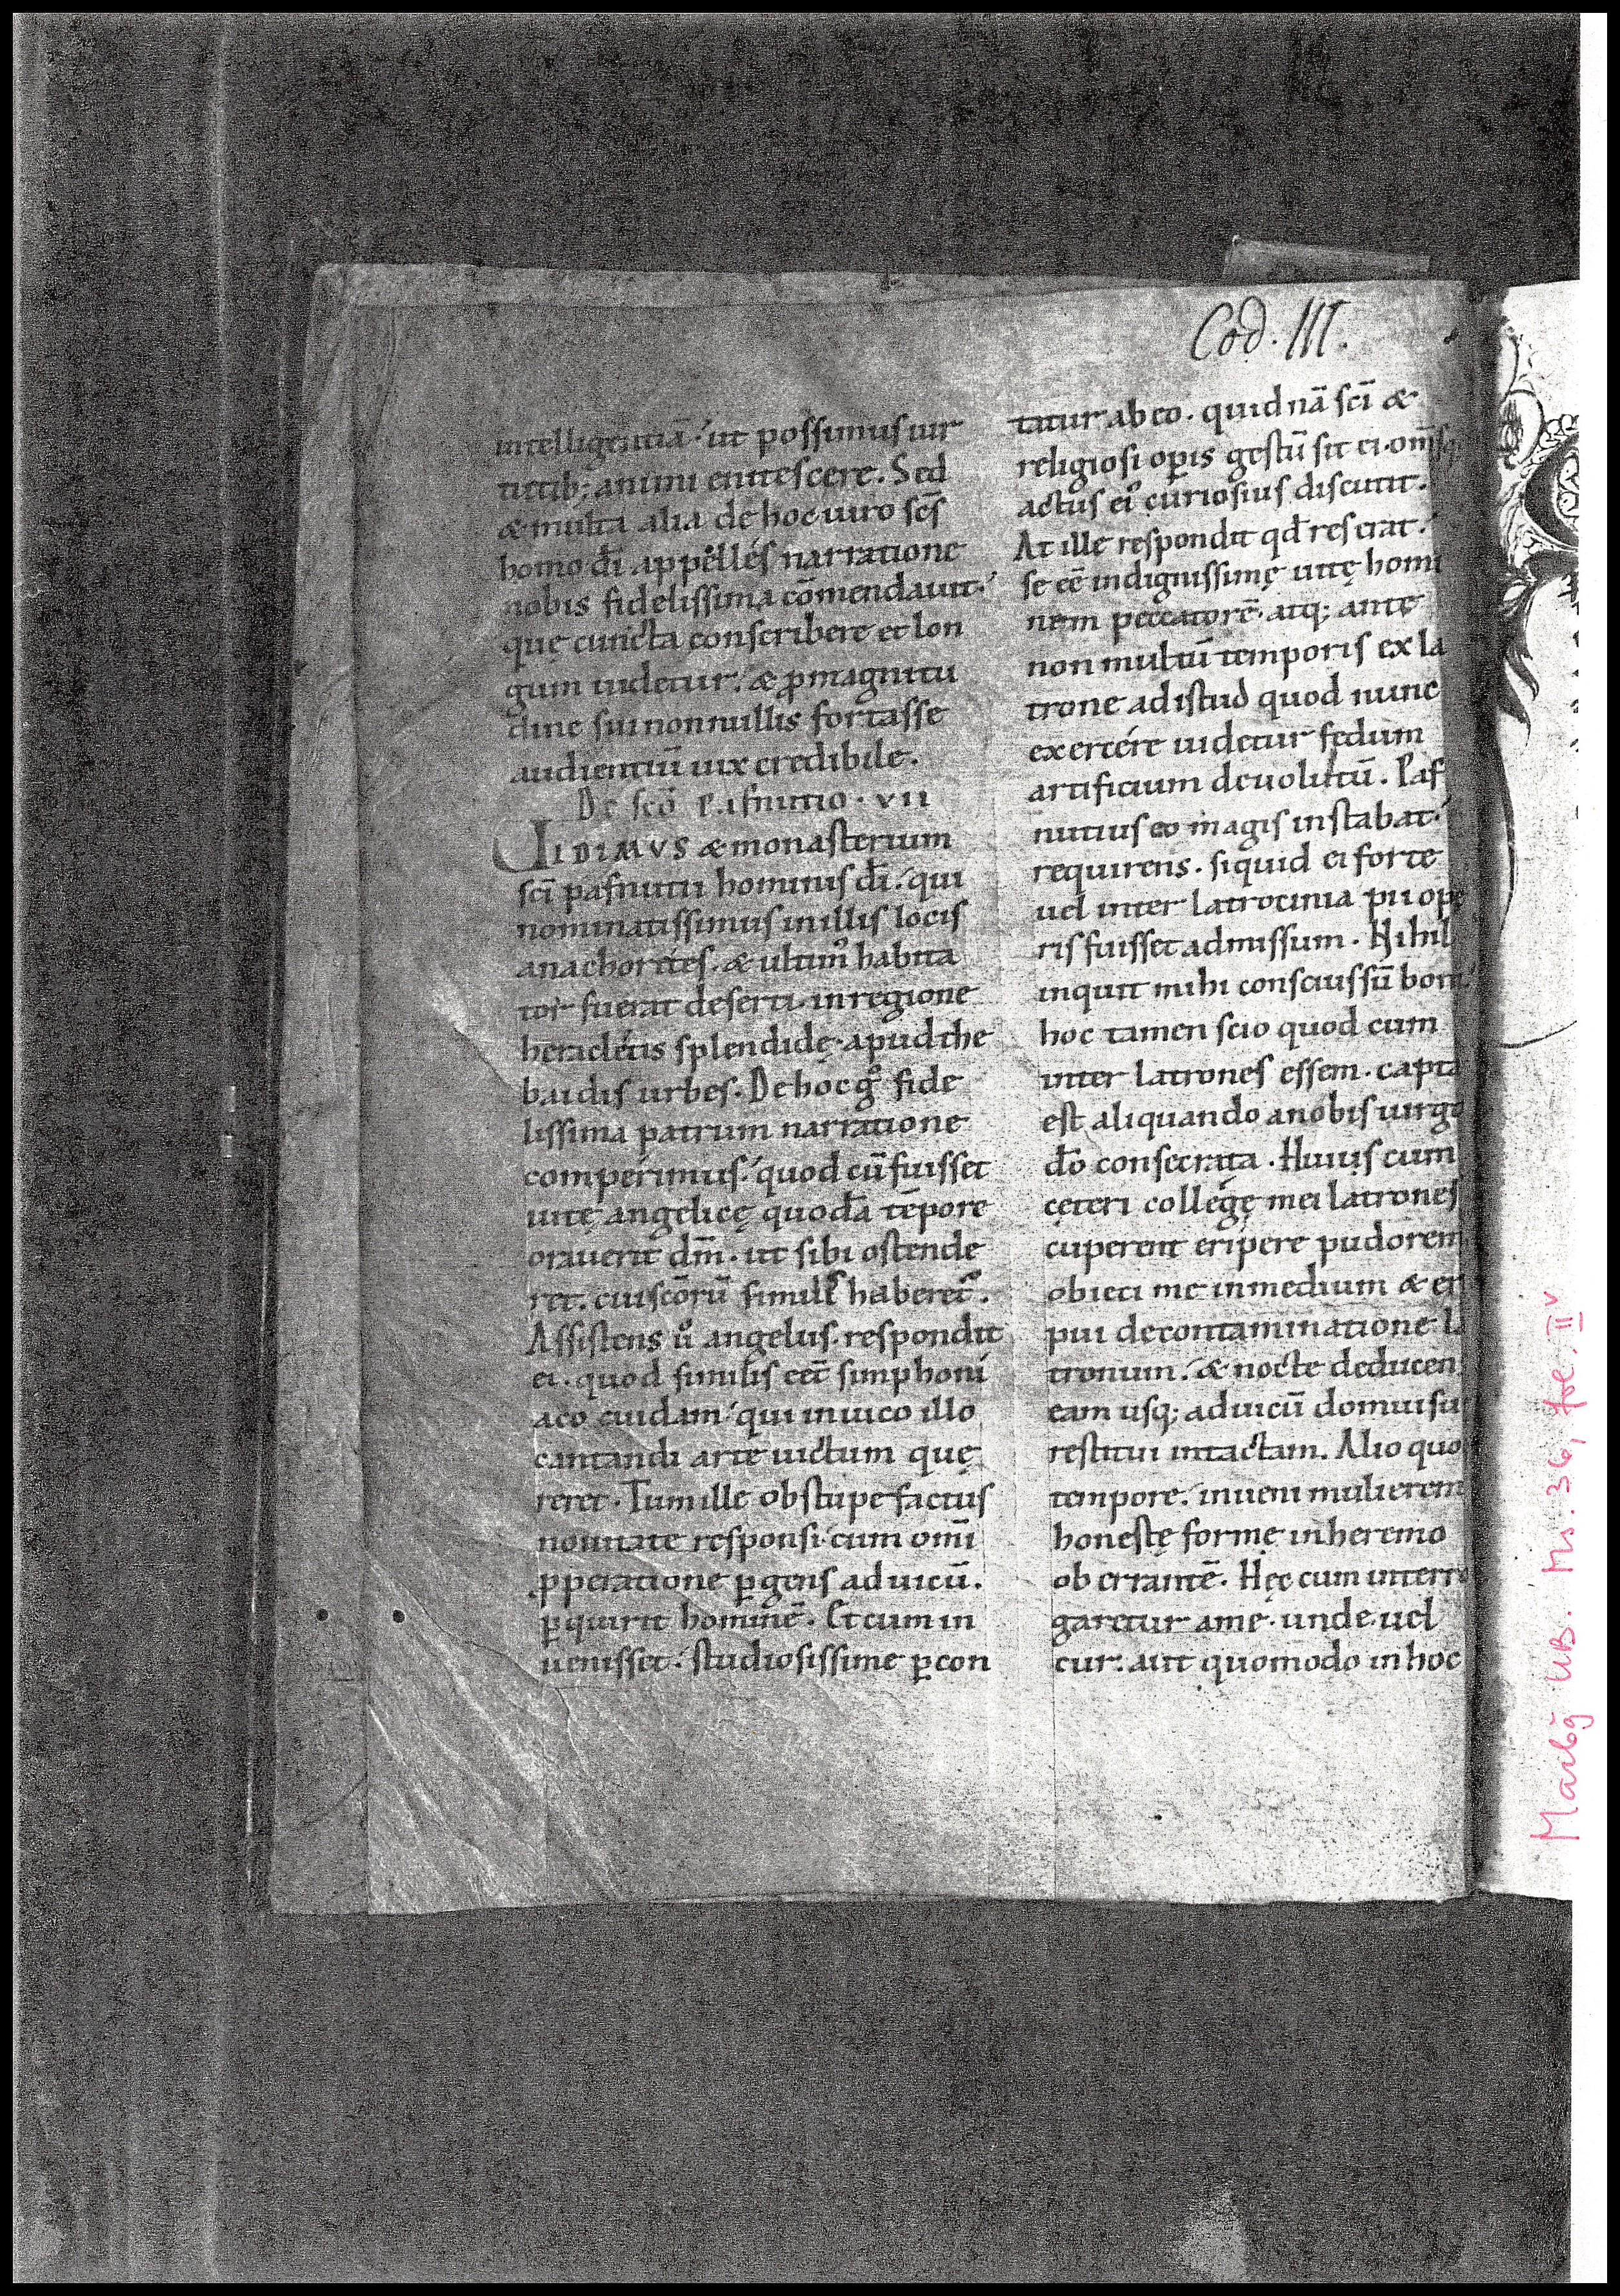 Cod. III.
intelligentiā. ut possimus uir
tutib; animi enitescere. Sed
& multa alia de hoc uiro scs̄
homo dī appellés narratione
nobis fidelissima cōmendauit.
quę cuncta conscribere et lon
gum uidetur. & p̱ magnitu
dine sui nonnullis fortasse
audientiū uix credibile.
De scō Pafnutio. VII
UIDIMVS & monasterium
scī pafnutii hominis dī. qui
nominatissimus in illis locis
anachorites. & ultimꝰ habita
tor fuerat deserti. in regione
heracléẹtis splendidę. apud the
baidis urbes. De hoc gͦ fide
lissima patrum narratione
comperimus. quod cū fuisset
uitę angelicę quodā tēpore
orauerit dm̄. ut sibi ostende
ret. cui scōrū similis haberetᷣ.
Assistens uͦ angelus. respondit
ei. quod similis eēt simphoni
aco cuidam. qui in uico illo
cantandi arte uictum quę
reret. Tum ille obstupefactus
nouitate responsi. cum omī
ꝓperatione ꝑgens ad uicū.
ꝑquirit hominē. Et cum in
uenisset. studiosissime ꝑcon
tatur ab eo. quid nā scī &
religiosi oꝑis gestū sit ei. om̄sq;
actus eiꝰ curiosius discutit.
At ille respondit qđ res erat.
se eē indignissimę uitę homi
nem peccatorē. atq; ante
non multū temporis ex la
trone ad istud quod nunc
exercére uidetur fędum
artificium deuolutū. Paf
nutius eo magis instabat.
requirens. siquid ei forte
uel inter latrocinia pii ope
ris fuisset admissum. Nihil
inquit mihi conscius sū boni.
hoc tamen scio quod cum
inter latrones essem. capta
est aliquando a nobis uirgo
dō consecrata. Huius cum
cęteri collegę mei latrones
cuperent eripere pudorem
obieci me in medium & eri
pui de contaminatione la
tronum. & nocte deducens
eam usq; ad uicū domui suę
restitui intactam. Alio quo
tempore. inueni mulierem
honestę formę in heremo
oberrantē. Hęc cum interro
garetur a me. unde. uel
cur. aut quomodo in hoc
Marbg UB. Ms. 36, fol. II v